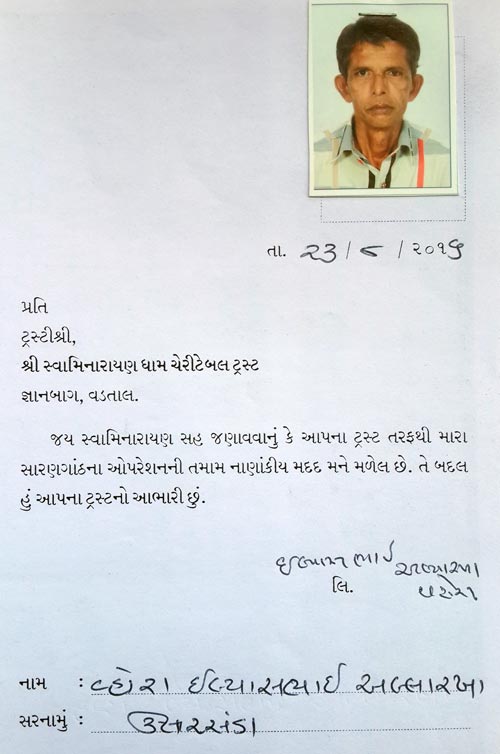 તા. ૨૩ / ૮ / ૨૦૧૬
પ્રતિ
ટ્રસ્ટીશ્રી,
શ્રી સ્વામિનારાયણ ધામ ચેરીટેબલ ટ્રસ્ટ
જ્ઞાનબાગ, વડતાલ.
જય સ્વામિનારાયણ સહ જણાવવાનું કે આપના ટ્રસ્ટ તરફથી મારા
સારણગાંઠના ઓપરેશનની તમામ નાણાંકીય મદદ મને મળેલ છે. તે બદલ
હું આપના ટ્રસ્ટનો આભારી છું.
ઈલ્યાસભાઈ અલ્લારખા
વહોરા
લિ.
નામ : વ્હોરા ઈલ્યાસભાઈ અલ્લારખા
સરનામું : ઉત્તરસંડા